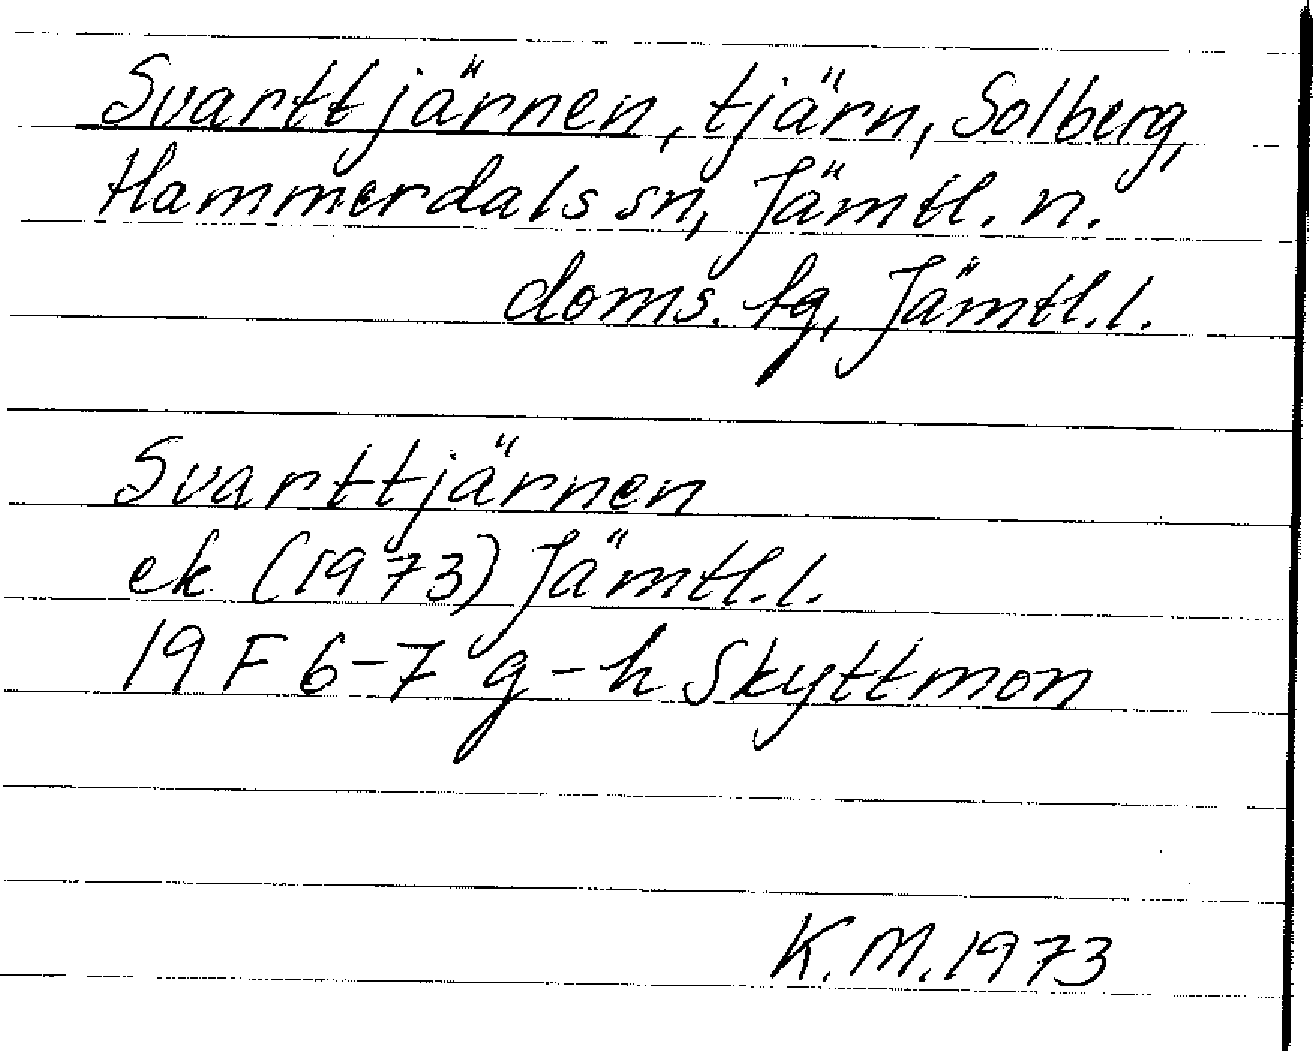 Svarttjärnen, tjärn, Solberg,
Hammerdals sn, Jämtl. n.
doms. tg, Jämtl. l.
Svarttjärnen
ek (1973) Jämtl. l.
19 F 6-7 g-h Skyttmon
K. M. 1973